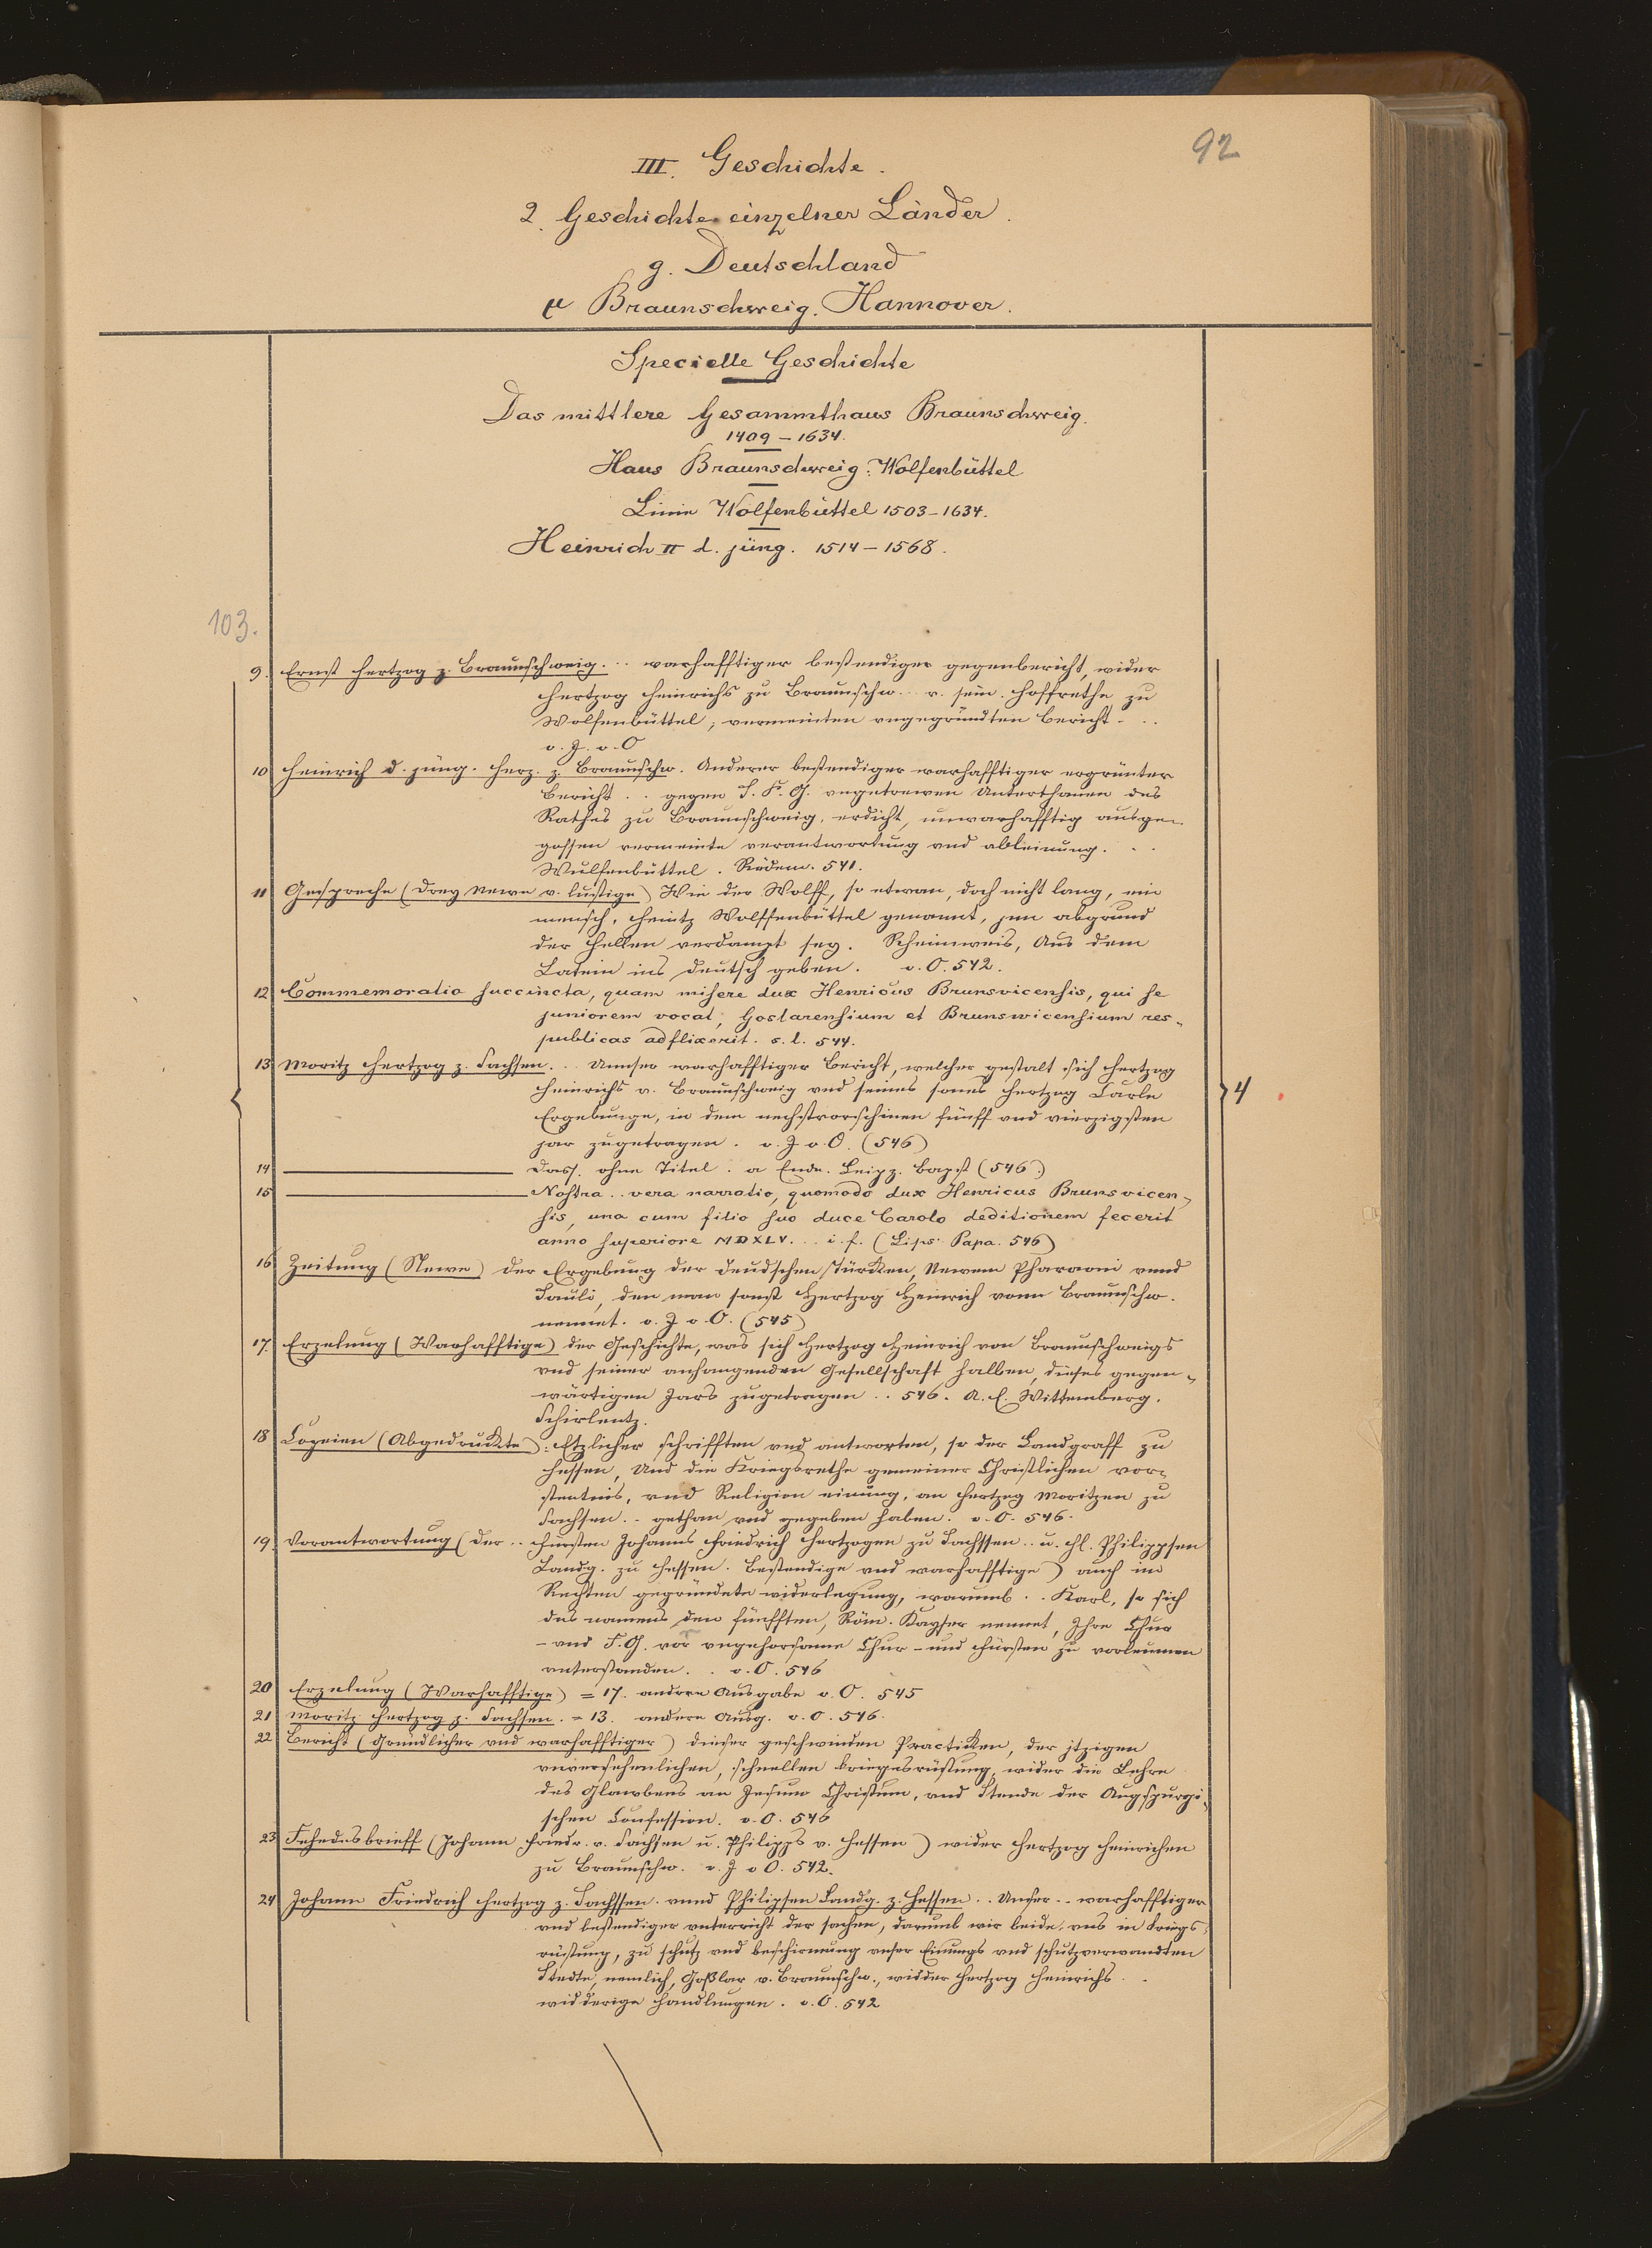 92
III. Geschichte.
2. Geschichte einzelner Länder.
g. Deutschland
μ Braunschweig. Hannover.
Specielle Geschichte
Das mittlere Gesammthaus Braunschweig.
1409 – 1634.
Haus Braunschweig-Wolfenbüttel
Linie Wolfenbüttel 1503–1634.
Heinrich II d. jüng. 1514–1568.
103.
9. Ernst Hertzog z. Braunschweig. .. warhafftiger bestendiger gegenbericht, wider
Hertzog Heinrichs zu Braunschw... v. sein. Hoffrethe zu
Wolfenbüttel, vermeinten vngegründten Bericht. ..
o. J. o. O
10 Heinrich d. jüng. Herz. z. Braunschw. Anderer bestendiger warhafftiger ergrünter
Bericht .. gegen S. F. G. vngetrewen Unterthanen des
Rathes zu Braunschweig, erdicht, unwarhafftig ausge-
gossen vermeinte verantwortung vnd ableinung. ..
Wulffenbüttel. Rüdem. 541.
11 Gespreche (Drey newe v. lustige) Wie der Wolff, so etwan, doch nicht lang, ein
mensch, Heintz Wolffenbüttel genannt, jnn abgrund
der Hellen verdampt sey. Reimweis, Aus dem
Latein ins deutsch geben. o. O. 542.
12 Commemoratio succincta, quam misere dux Henricus Brunsvicensis, qui se
juniorem vocat, Goslarensium et Brunswicensium res-
publicas adflixerit. s. l. 544.
13 Moritz Hertzog z. Sachsen. .. Unnser warhafftiger Bericht, welcher gestalt sich Hertzog
Heinrichs v. Braunschweig vnd seines sones Hertzog Carln
Ergebunge, in dem nechstvorschinen fünff vnd vierzigsten
jar zugetragen. o. J o. O. (546)
14 Dass. ohne Titel. a Ende. Leipz. Bapst (546.)
15 Nostra .. vera narratio, quomodo dux Henricus Brunsvicen-
sis, una cum filio suo duce Carolo deditionem fecerit
anno superiore MDXLV. .. i. f. (Lips. Papa. 546)
16 Zeitung (Newe) der Ergebung der deudschen Türcken, Newem Pharaoni vnnd
Sauli, den man sonst Hertzog Heinrich vonn Braunschw.
nennet. o. J o. O. (545)
17. Erzelung (Warhafftige) der Geschichte, was sich Hertzog Heinrich von Braunschweigs
vnd seiner anhangenden Gesellschaft halben, dieses gegen-
wärtigen Jars zugetragen .. 546. A. E. Wittemberg.
Schirlentz.
18 Copeien (Abgedruckte): Etzlicher schrifften vnd antworten, so der Landgraff zu
Hessen, Und die Kriegsrethe gemeiner Christlichen vor-
stentnis, vnd Religion einung, an Hertzog Moritzen zu
Sachsen .. gethan vnd gegeben haben. o. O. 546.
19. Verantwortung (Der .. Fürsten Johanns Friedrich Hertzogen zu Sachssen .. u. H. Philippsen
Landg. zu Hessen. Bestendige vnd warhafftige) auch im
Rechten gegründete widerlegung, warumb .. Karl, so sich
des namens den fünfften, Röm. Kayser nennet, Ihre Chur
- vnd F. G. vor vngehorsame Chur- und Fürsten zu vorleumen
vnterstanden. .. o. O. 546
20 Erzelung (Warhafftige) = 17. andere Ausgabe o. O. 545
21 Moritz Hertzog z. Sachsen. = 13. andere Ausg. o. O. 546.
22 Bericht (Gründlicher vnd warhafftiger) dieser geschwinden Practicken, der jtzigen
vnversehenlichen, schnellen Kriegesrüstung wider die Lehre
des Glawbens an Jesum Christum, vnd Stende der Augspurgi-
schen Confession. o. O. 546
23 Fehedesbrieff (Johann Friedr. v. Sachsen u. Philipps v. Hessen) wider Hertzog Heinrichen
zu Braunschw. o. J o O. 542.
24 Johann Friedrich Hertzog z. Sachssen. vnnd Philipsen Landg. z. Hessen .. Unser .. warhafftiger
vnd bestendiger vnterricht der sachen, darumb wir beide, vns in kriegs-
rüstung, zu schutz vnd beschirmung unser Einungs vnd schutzverwandten
Stedte, nemlich, Goßlar v. Braunschw., widder Hertzog Heinrichs ..
widderige handlungen. o. O. 542
4